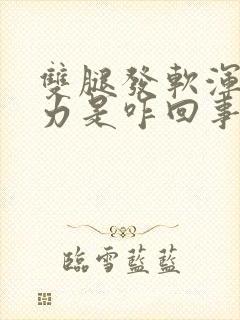 雙腿發軟渾
力是咋回事
臨雪藍藍